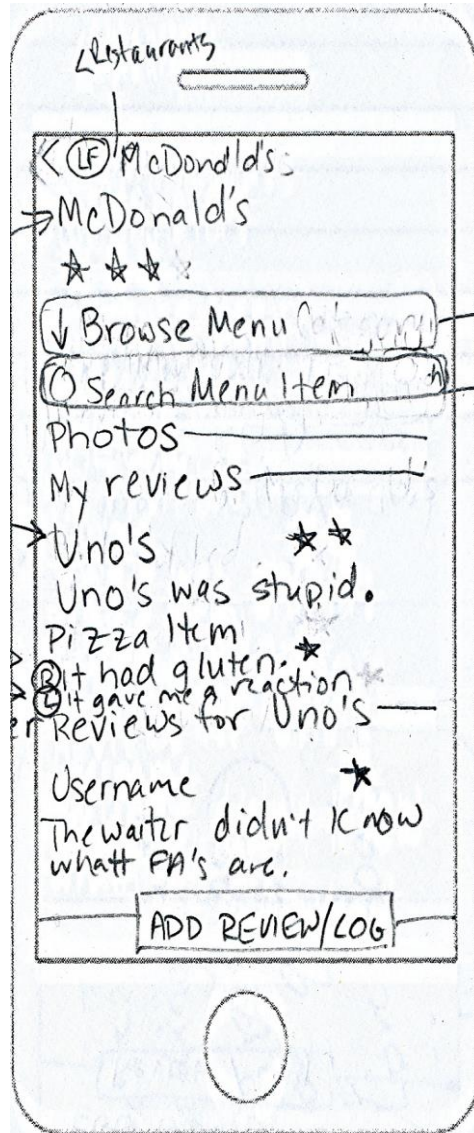 <Restaurants
< LF McDonald's
McDonald's
↓ Browse Menu
Search Menu Item
Photos
My reviews
Uno's
Uno's was stupid.
Pizza Item
R it had gluten.
L it gave me a reaction
er
Reviews for Uno's
Username
The waiter didn't know
whatt FA's are.
ADD REVIEW/LOG